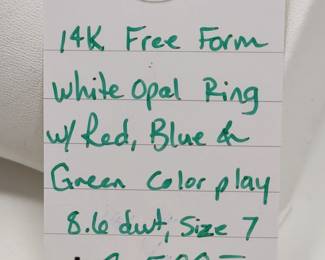 14K Free Form
White Opal Ring
w/ Red, Blue &
Green Color play
8.6 dwt, Size 7